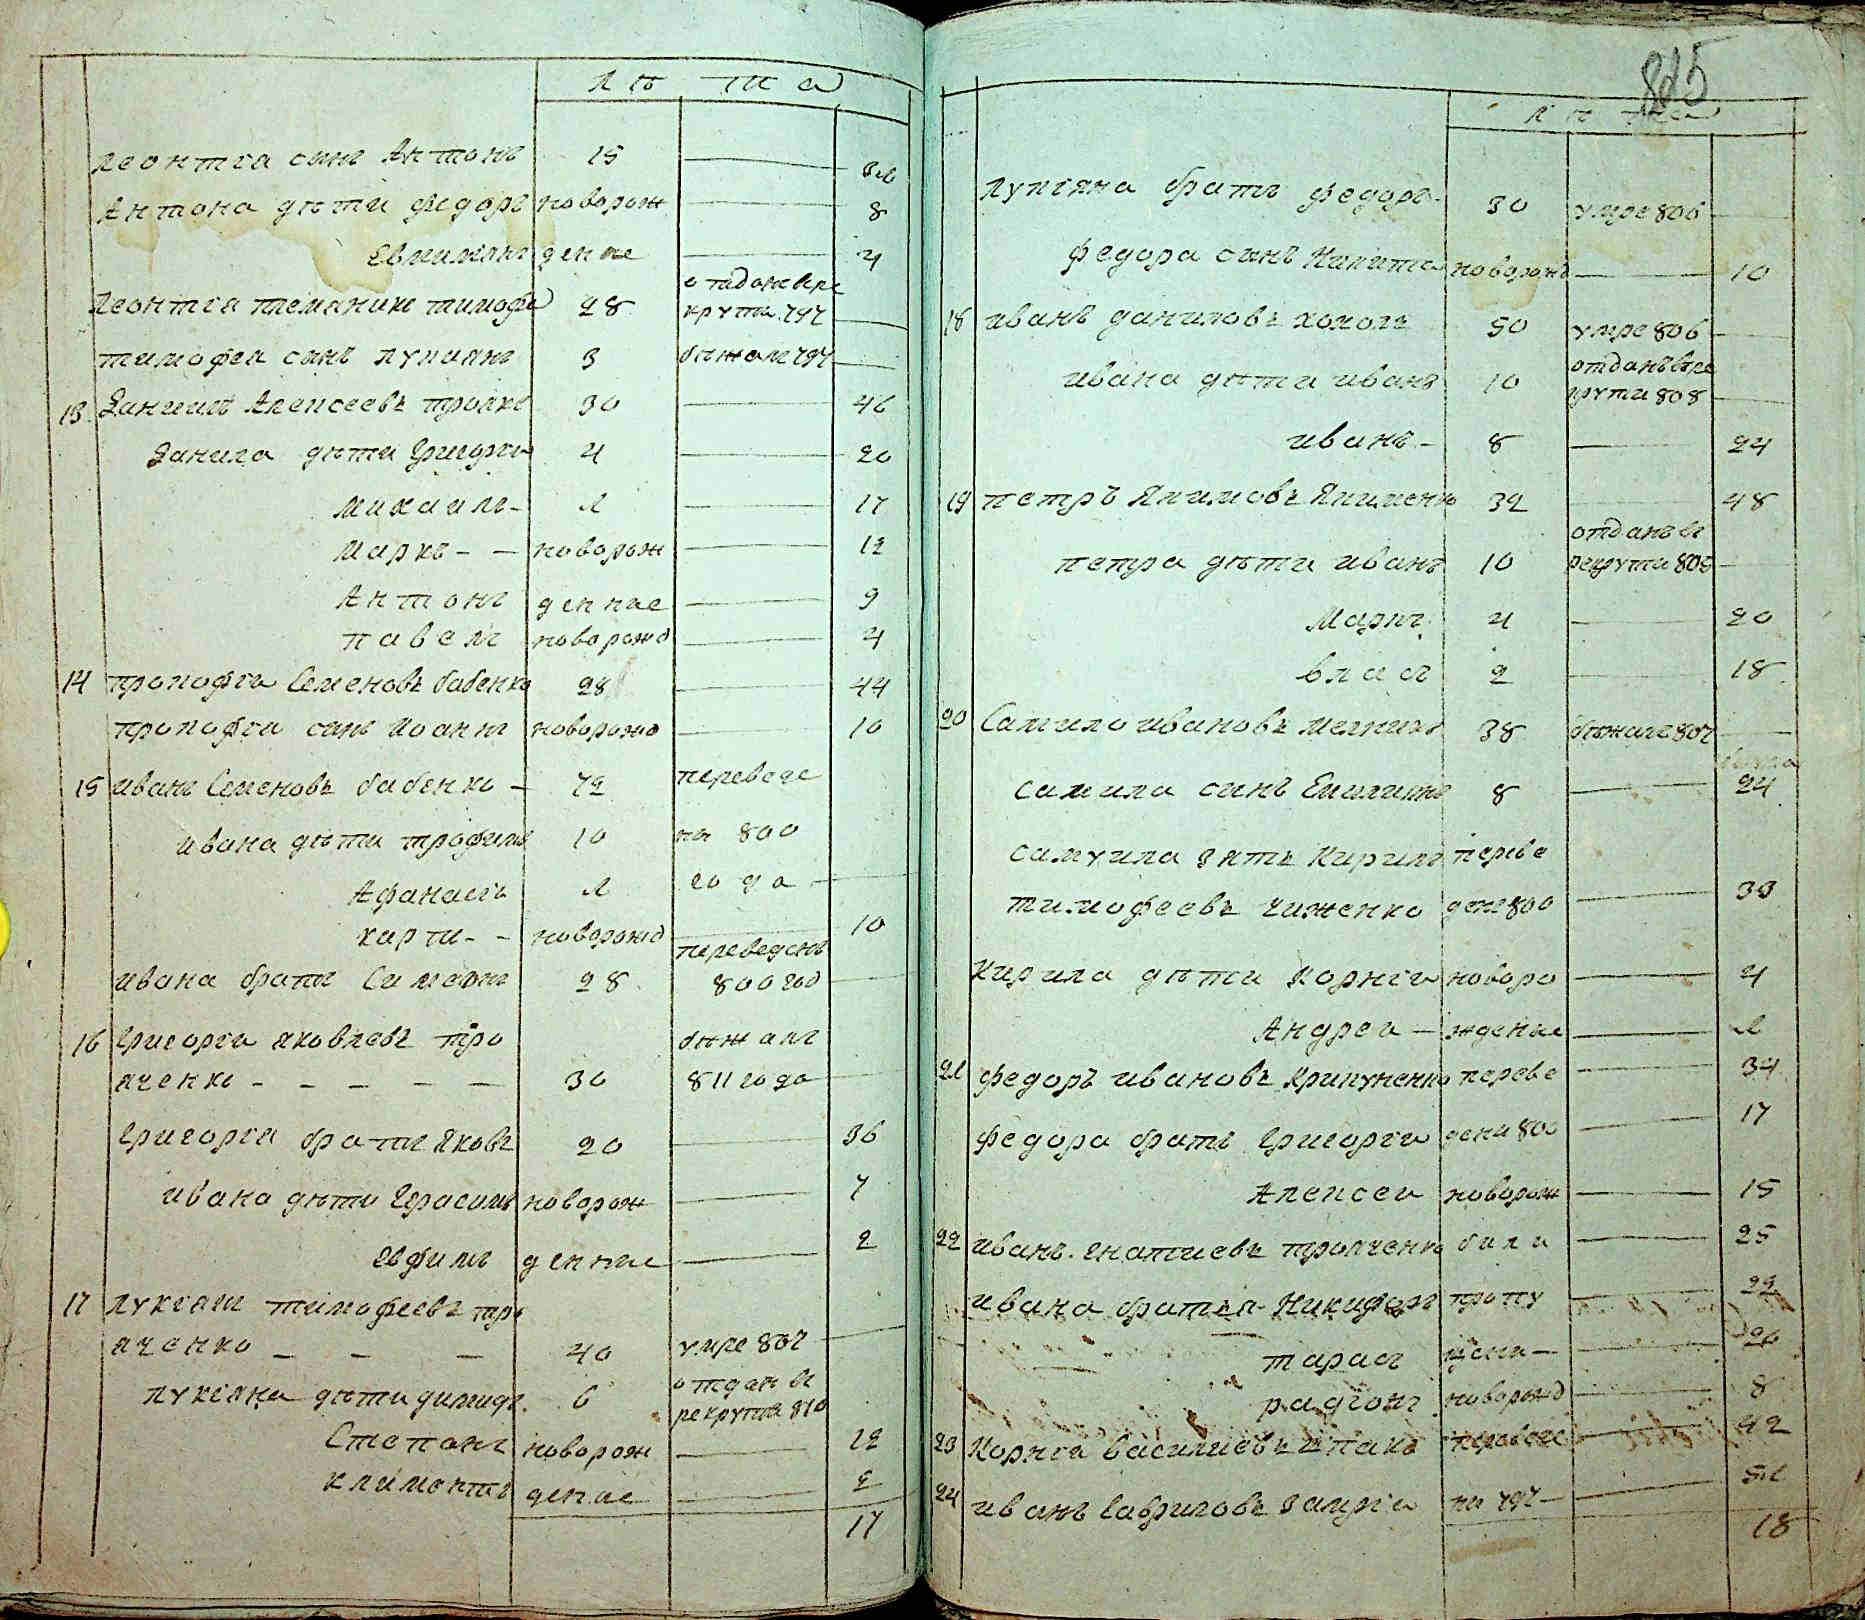 лѣта
леонтея сынъ Антонъ 15
Антона дѣти федоръ новорож 8
денные 4
леонтея племяникъ тимофе 28 отданъ вре
крути 797
тимофея сынъ лукиянъ 3 бѣжалъ 797
13 Данило Алексеевъ 30 46
Данила дѣти Григорей 4 20
михаилъ 1 17
маркъ новорож 12
Антонъ денные 9
павелъ новорожд 4
14 прокофеи Семеновъ бабенко 28 44
прокофеи сынъ Иоанъ новорожд 10
15 иванъ Семеновъ бабенко 72 переведе
ивана дѣти трофимъ 10 на 800
Афанасеи 1 года
карпъ новорожд 10
ивана братъ 28 переведенъ
800 год
16 Григореи яковлевъ тро бѣжалъ
яченко 30 811 года
Григорея братъ яковъ 20 36
ивана дѣти Герасимъ новорож 7
Евфимъ денные 2
17 лукиянъ тимофеевъ тро
яченко 40 умре 807
лукияна дѣти 6 отданъ въ
рекрути 810
Степанъ новорож 12
климентей денные 2
17
815
лѣта
лукияна братъ федоръ 30 умре 806
федора сынъ Никита новорожд 10
18 иванъ даниловъ 50 умре 806
ивана дѣти иванъ 10 отданъ вре
крути 808
иванъ 8 24
19 петръ Якимовъ Якименко 32 48
петра дѣти иванъ 10 отданъ въ
рекрути 805
маркъ 4 20
власъ 2 18
20 Самило ивановъ мелникъ 38 бѣжалъ 807
самила сынъ 8 24
самуила зять Кирилъ переве
тимофеевъ чиженко денъ 800 33
Кирила дѣти Корнеи новоро 4
Андреи ждение 1
21 федоръ ивановъ крикуненко переве 34
федора братъ Григореи дени 800 17
Алексеи новорож 15
22 иванъ игнатиевъ трояченко били 25
ивана братья Никифоръ пропу 22
тарасъ щени 20
радионъ новорожд 8
23 Корнеи Василиевъ шпакъ переведе 42
24 иванъ Гавриловъ на 797
18